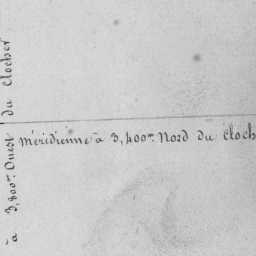 à 3,800m Ouest du Clocher
Méridienne à 3,400m Nord du Cloch